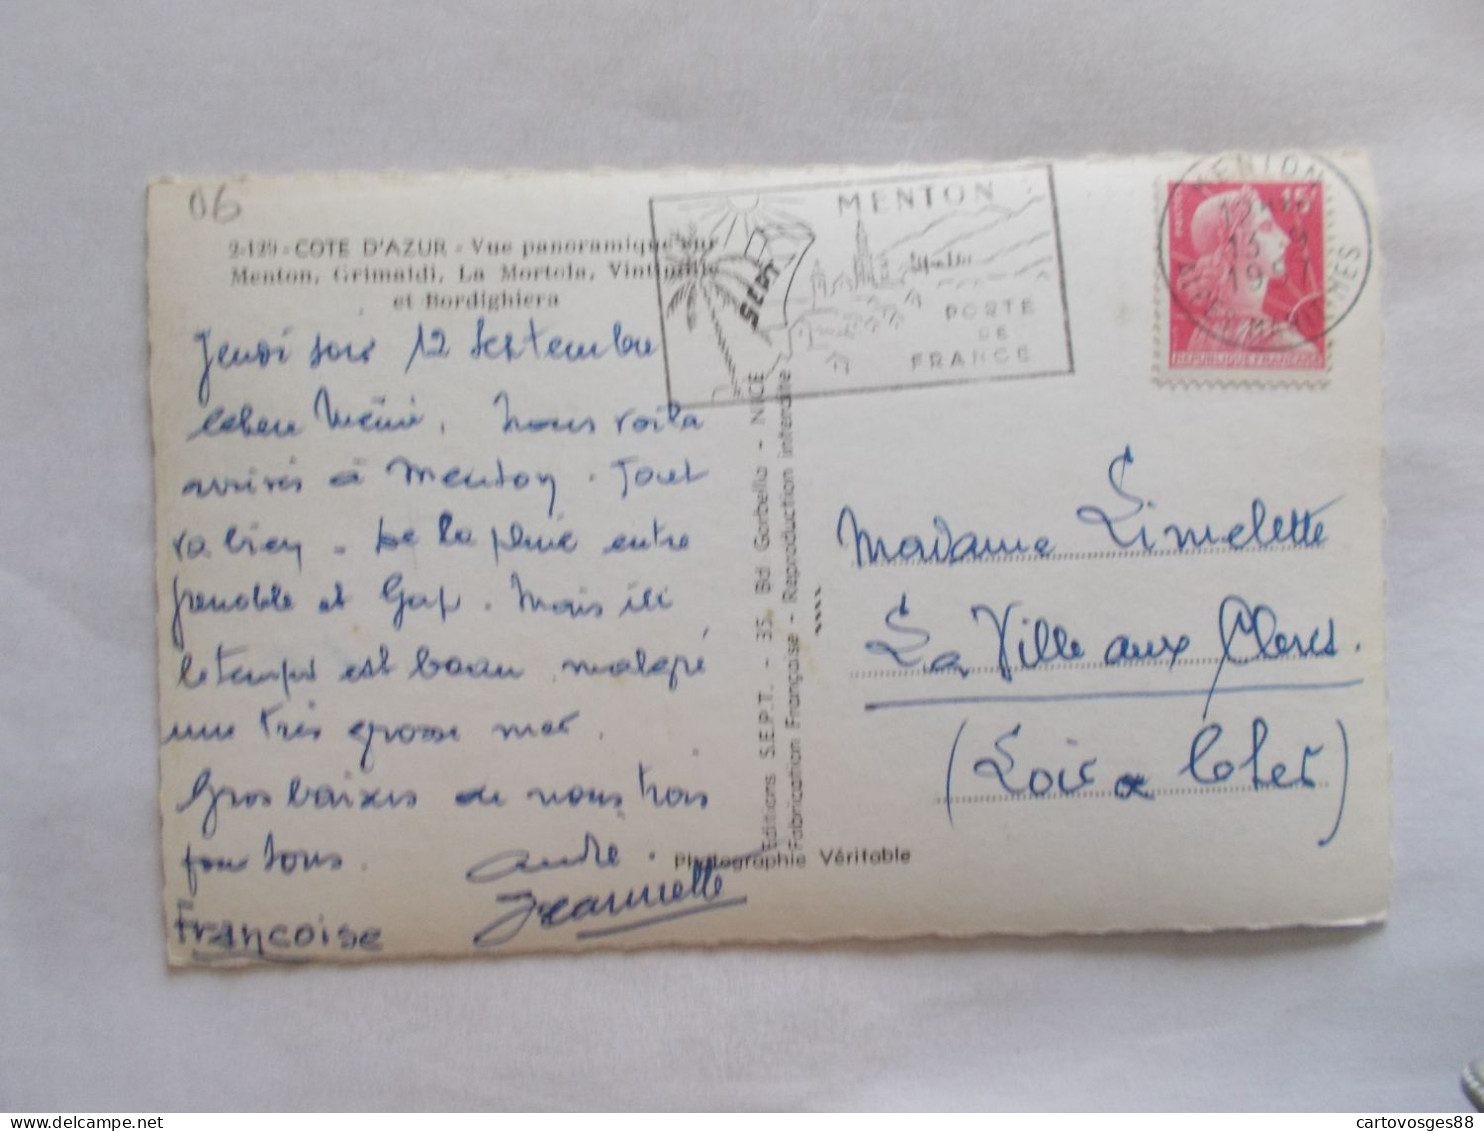 06
2-129 - COTE D'AZUR - Vue panoramique sur
Menton, Grimaldi, La Mortola, Vintimille
et Bordighiera
Jeudi soir 12 Septembre
Chère Mémé. Nous voilà
arrivés à Menton. Tout
va bien. De la pluie entre
Grenoble et Gap. Mais ici
le temps est beau malgré
une très grosse mer.
Gros baisers de nous trois
pour tous.
André.
Jeannette
Françoise
Editions S.E.P.T. - 35, Bd Gorbella - NICE
Fabrication Française - Reproduction interdite
Photographie Véritable
SEPT
MENTON
PORTE
DE
FRANCE
MENTON
13 - 9
15F
REPUBLIQUE FRANÇAISE
Madame Limelette
La Ville aux Clercs.
(Loir & Cher)
cartovosges88